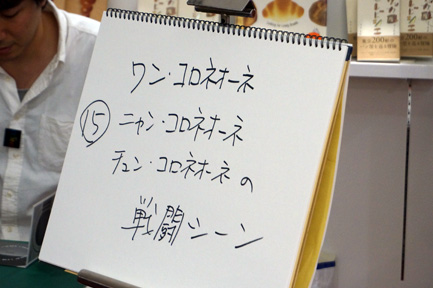 ワン・コロネオーネ
⑮ ニャン・コロネオーネ
チュン・コロネオーネの
戦闘シーン